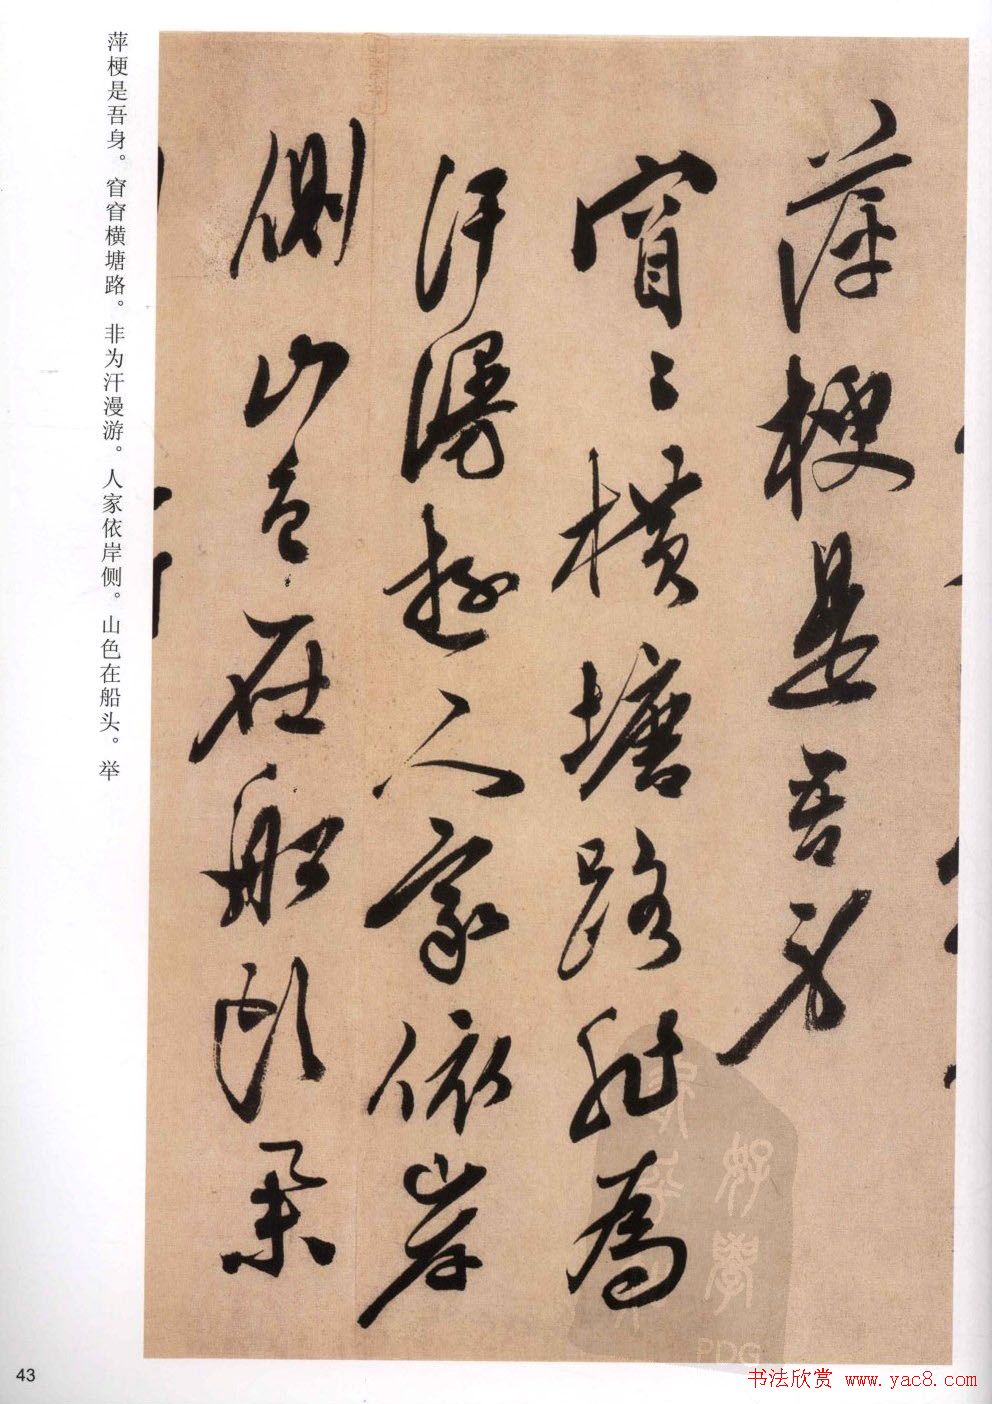 萍梗是吾身
窅〻横塘路非為
汗漫遊人家依岸
側山色在船頭
萍梗是吾身。窅窅横塘路。非为汗漫游。人家依岸侧。山色在船头。举
43
PDG
书法欣赏 www.yac8.com